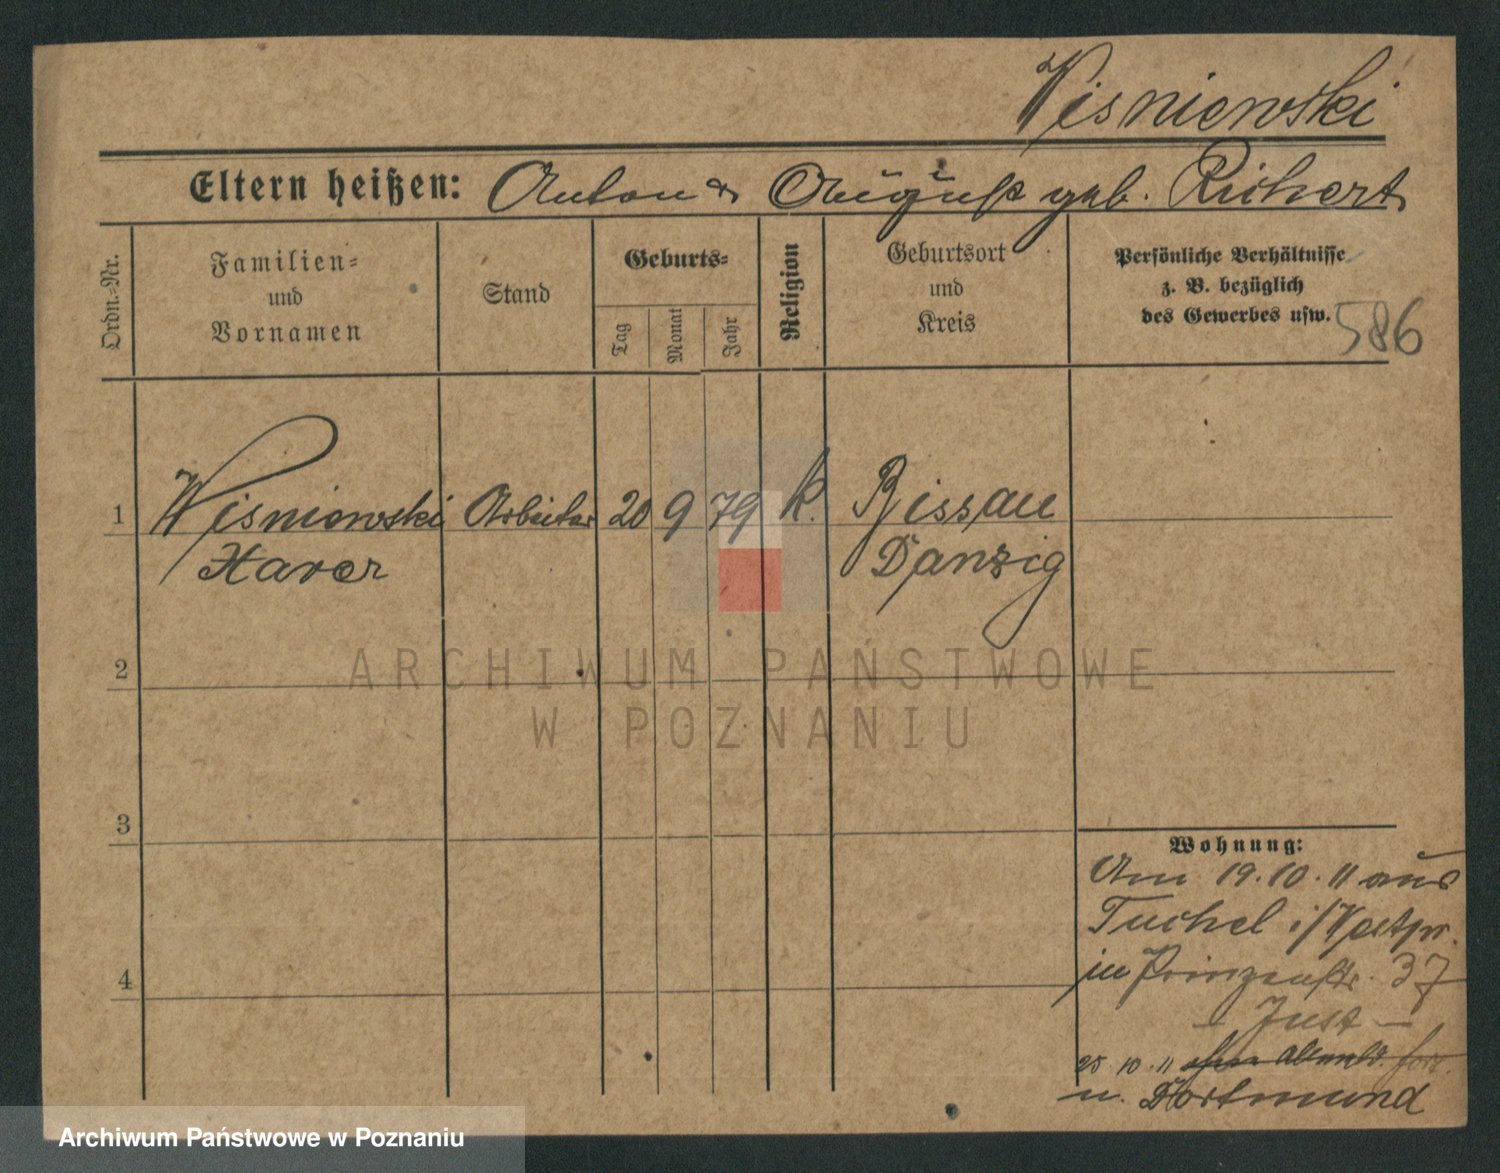 Wisniewski
Eltern heißen: Anton & August geb. Richert
Ordn.-Nr.
Familien-
und
Vornamen
Stand
Geburts-
Tag
Monat
Jahr
Religion
Geburtsort
und
Kreis
Persönliche Verhältnisse
z. B. bezüglich
des Gewerbes usw.
586
1 Wisniewski Arbeiter 20 9 79 k. Bissau
Xaver Danzig
2
ARCHIWUM PAŃSTWOWE
W POZNANIU
3
Wohnung:
Am 19.10.11 aus
Tuchel i/Westpr.
in Prinzenstr. 37
4
– Just –
25.10.11 ohne Abmeld. fort.
n. Dortmund
Archiwum Państwowe w Poznaniu